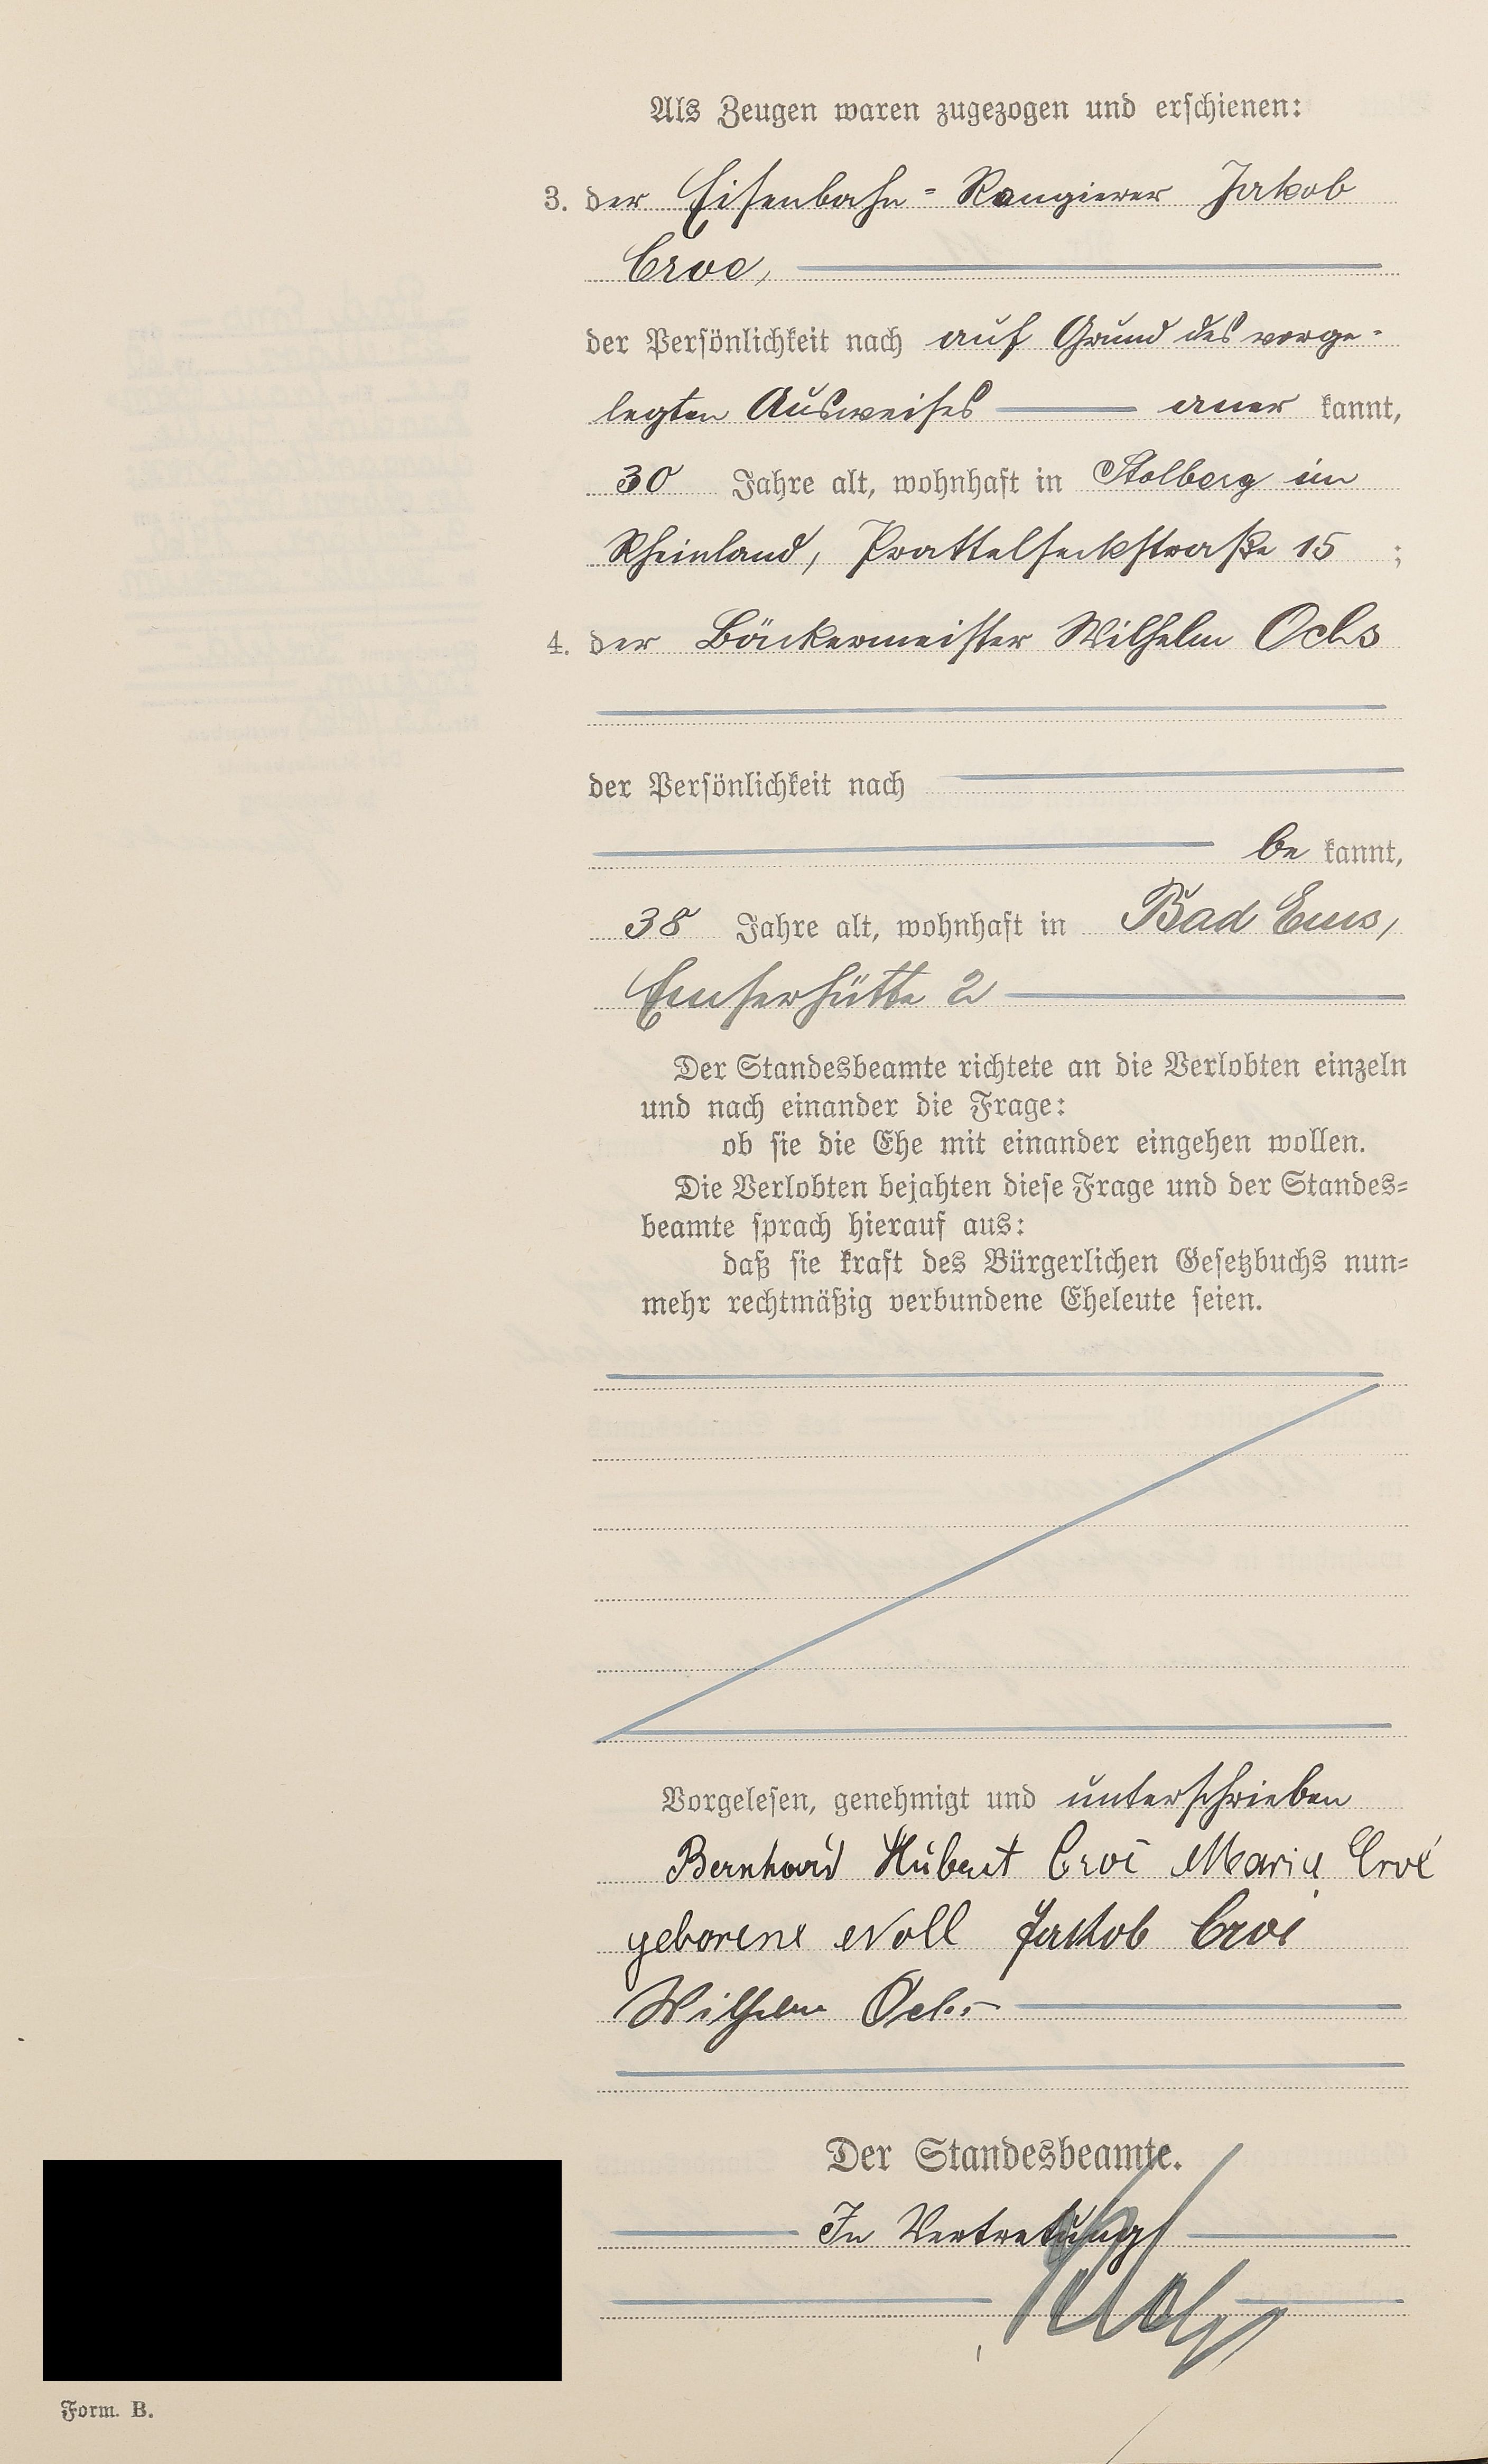 Als Zeugen waren zugezogen und erschienen:
3. der Eisenbahn-Rangierer Jakob
Croe,
der Persönlichkeit nach auf Grund des vorge-
legten Ausweises aner kannt,
30 Jahre alt, wohnhaft in Stolberg im
Rheinland, 15 ;
4. der Bäckermeister Wilhelm Ochs
der Persönlichkeit nach
be kannt,
38 Jahre alt, wohnhaft in Bad Ems,
Emserhütte 2
Der Standesbeamte richtete an die Verlobten einzeln
und nach einander die Frage:
ob sie die Ehe mit einander eingehen wollen.
Die Verlobten bejahten diese Frage und der Standes=
beamte sprach hierauf aus:
daß sie kraft des Bürgerlichen Gesetzbuchs nun=
mehr rechtmäßig verbundene Eheleute seien.
Vorgelesen, genehmigt und unterschrieben
Bernhard Hubert Croé Maria Croé
geborene Noll Jakob Croé
Wilhelm Ochs
Der Standesbeamte.
In Vertretung
Form. B.